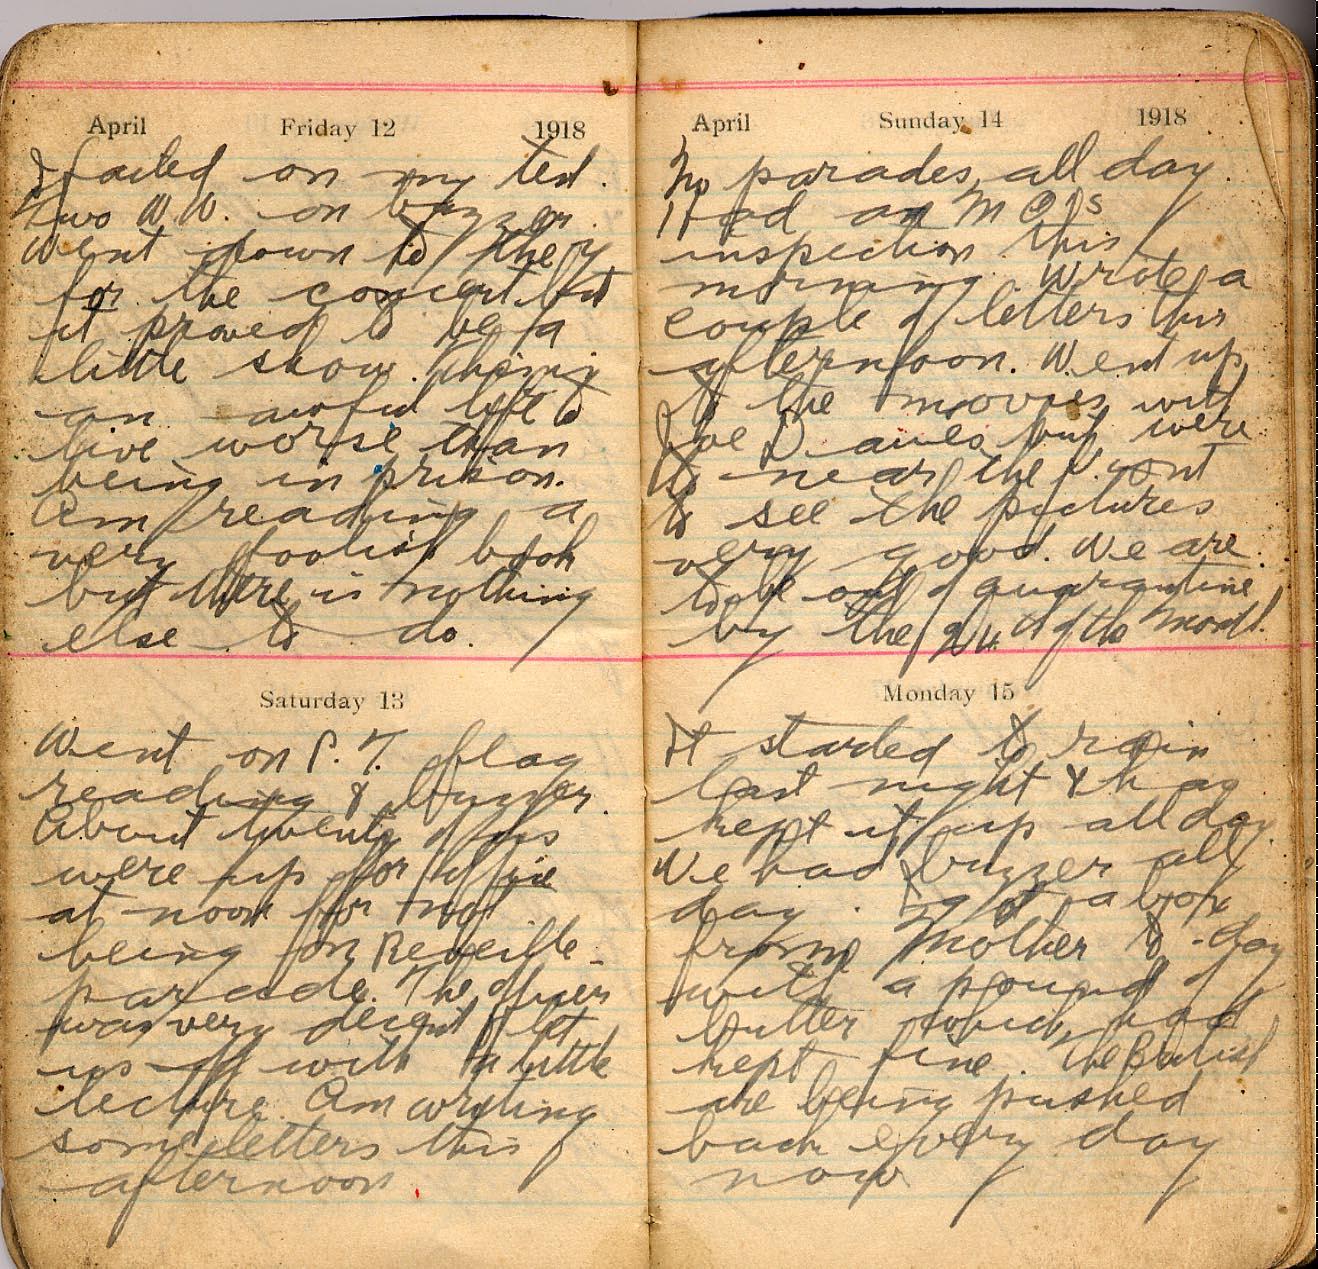 April Friday 12 1918
I failed on my test.
Two W.W. on buzzer
went down to the Y
for the concert but
it proved to be a
little show. This is
an awful life to
live worse than
being in prison.
Am reading a
very foolish book
but there is nothing
else to do.
Saturday 13
Went on P.T. flag
reading & buzzer.
About twenty of us
were up for office
at noon for not
being on Reveille
parade. The officer
was very decent & let
us off with a little
lecture. Am writing
some letters this
afternoon
April Sunday 14 1918
No parades all day.
Had an M O's
inspection this
morning. Wrote a
couple of letters this
afternoon. Went up
to the movies with
Joe Dawes but were
to near the front
to see the pictures
very good. We are
to be out of quarantine
by the of the month.
Monday 15
It started to rain
last night & has
kept it up all day.
We had buzzer all
day. I got a box
from Mother to-day
with a pound of
butter which had
kept fine. The British
are being pushed
back every day
now